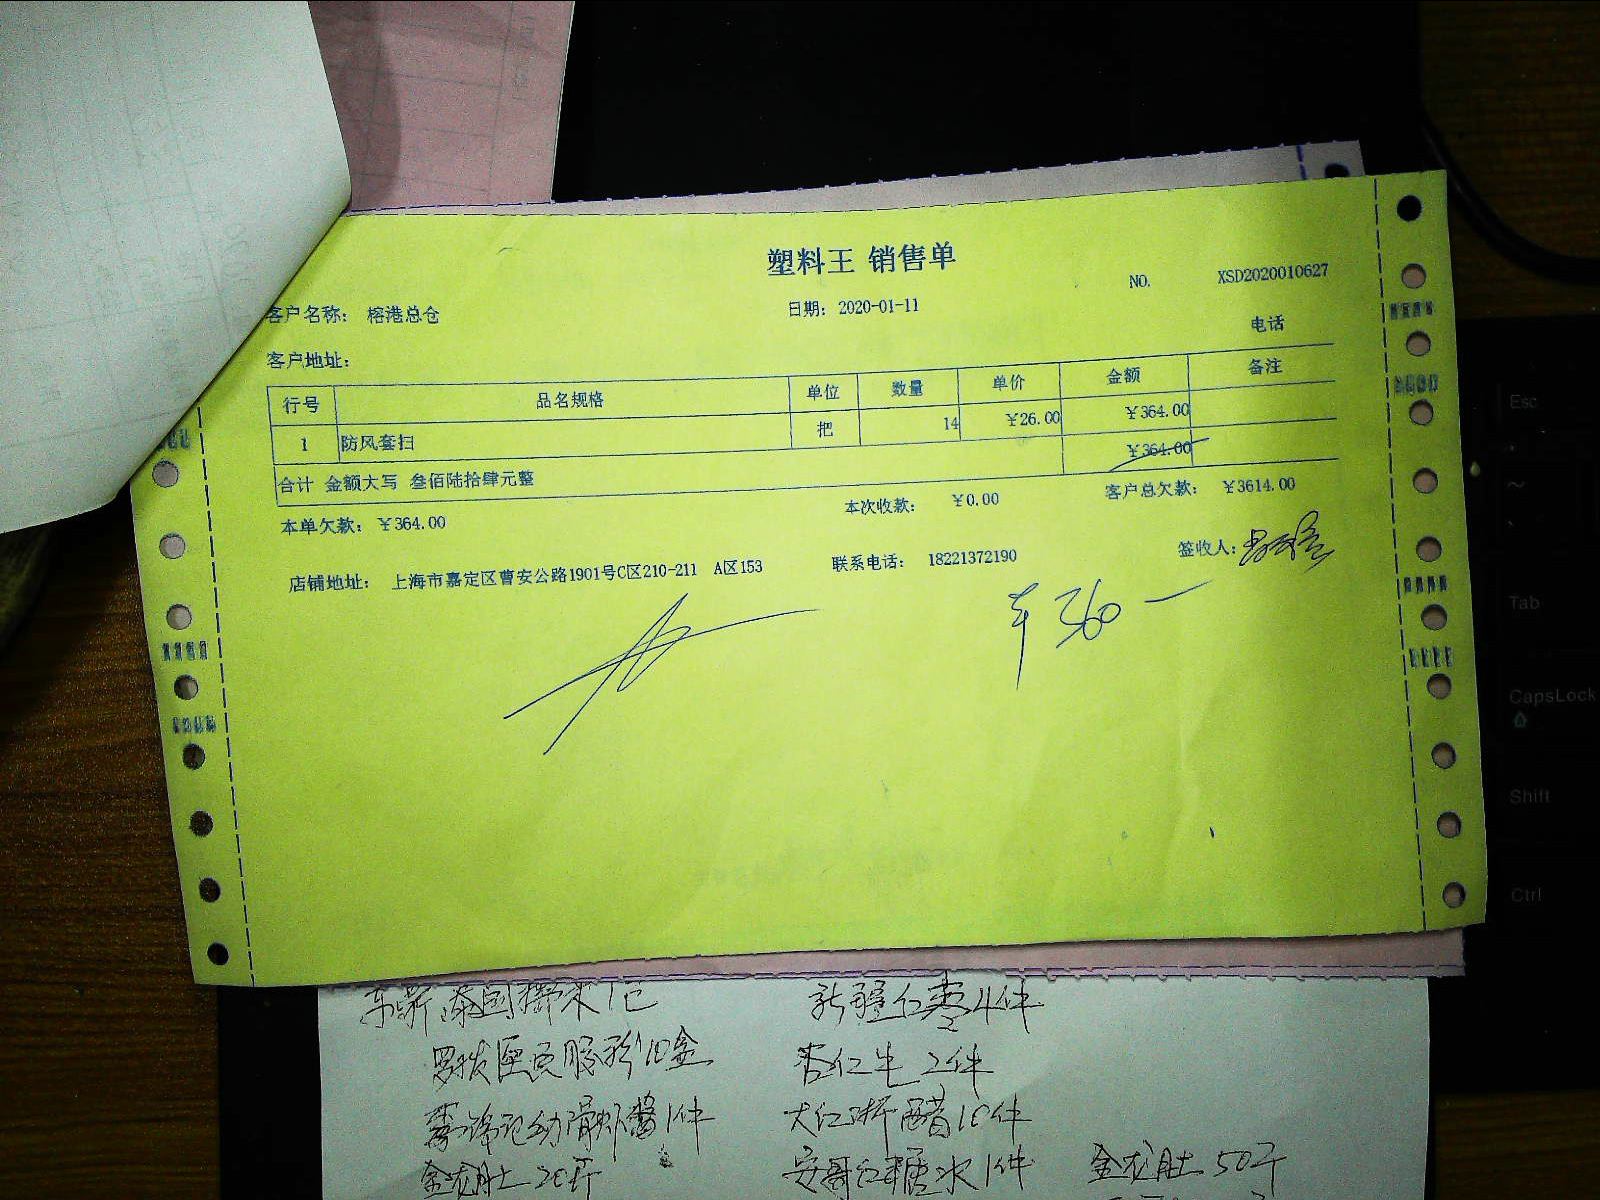 塑料王 销售单
NO. XSD2020010627
客户名称： 榕港总仓 日期：2020-01-11
电话
客户地址：
行号 品名规格 单位 数量 单价 金额 备注
1 防风套扫 把 14 ¥26.00 ¥364.00
合计 金额大写 叁佰陆拾肆元整 ¥364.00
本单欠款：¥364.00 本次收款： ¥0.00 客户总欠款： ¥3614.00
店铺地址： 上海市嘉定区曹安公路1901号C区210-211 A区153 联系电话： 18221372190 签收人：
360
新疆红枣4件
杏仁牛2件
大红浙醋10件
20斤
1件
50斤
Esc
~
Tab
CapsLock
Shift
Ctrl